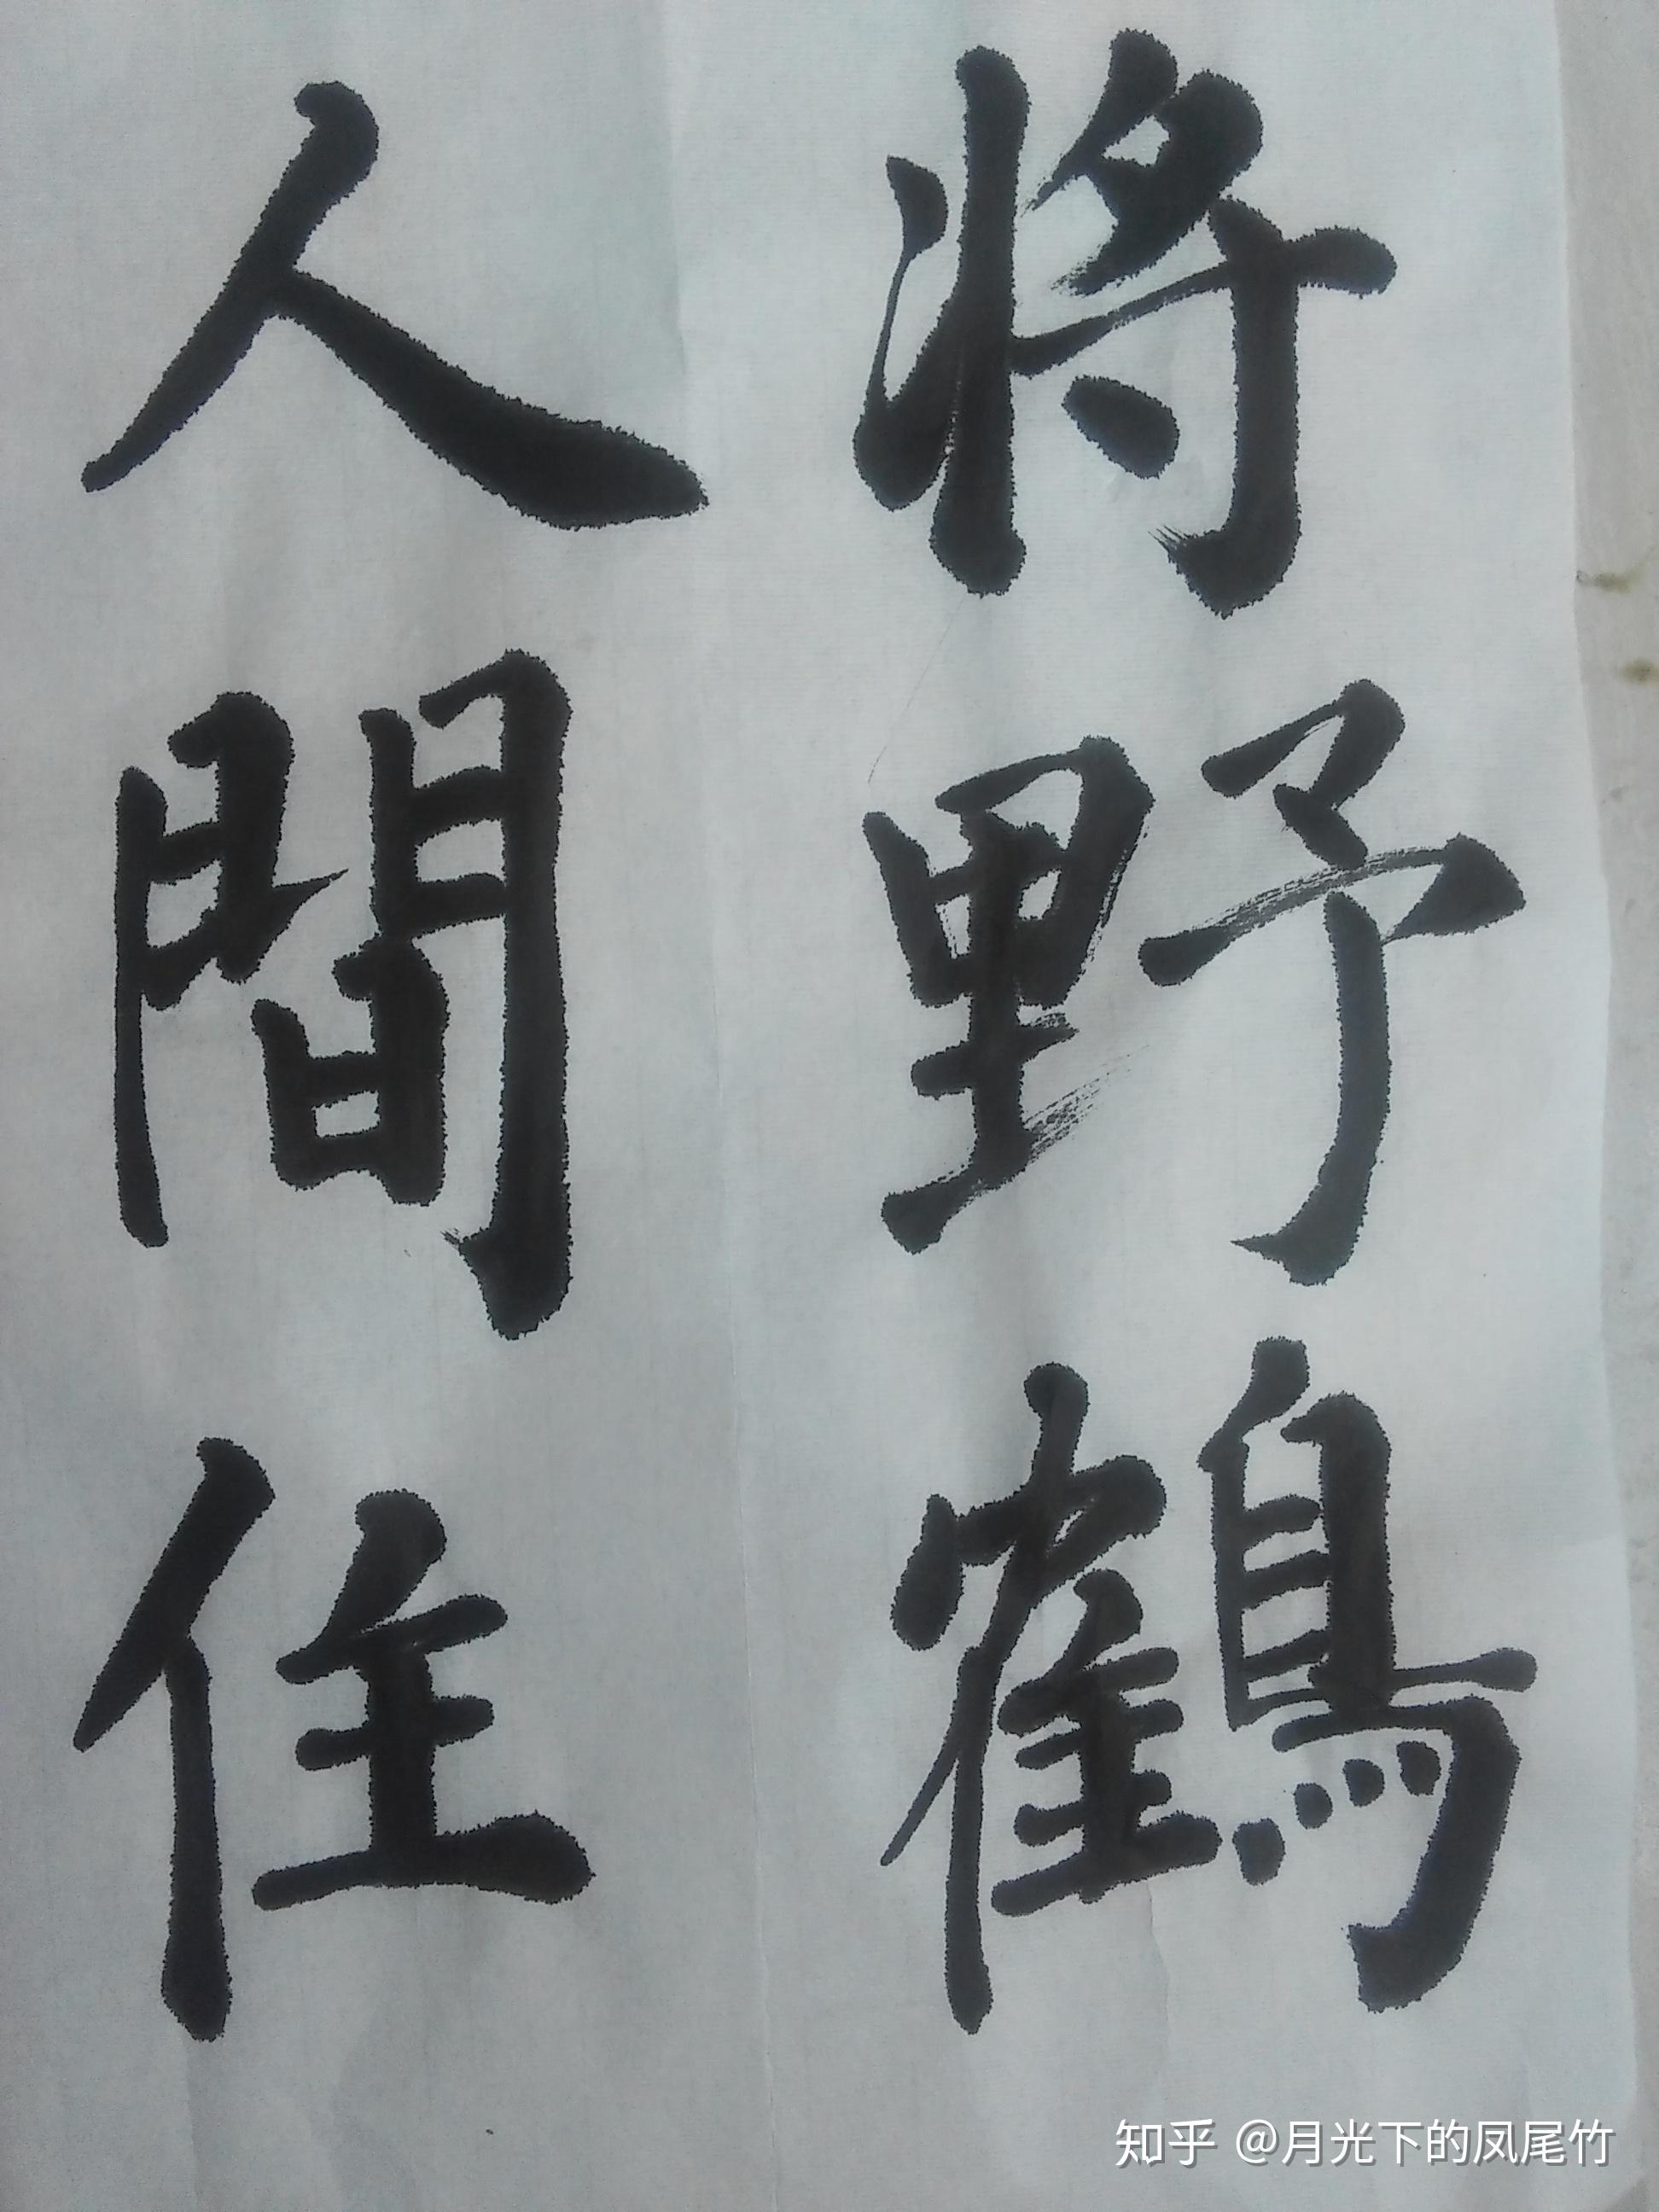 将野鶴
人間住
知乎 @月光下的凤尾竹